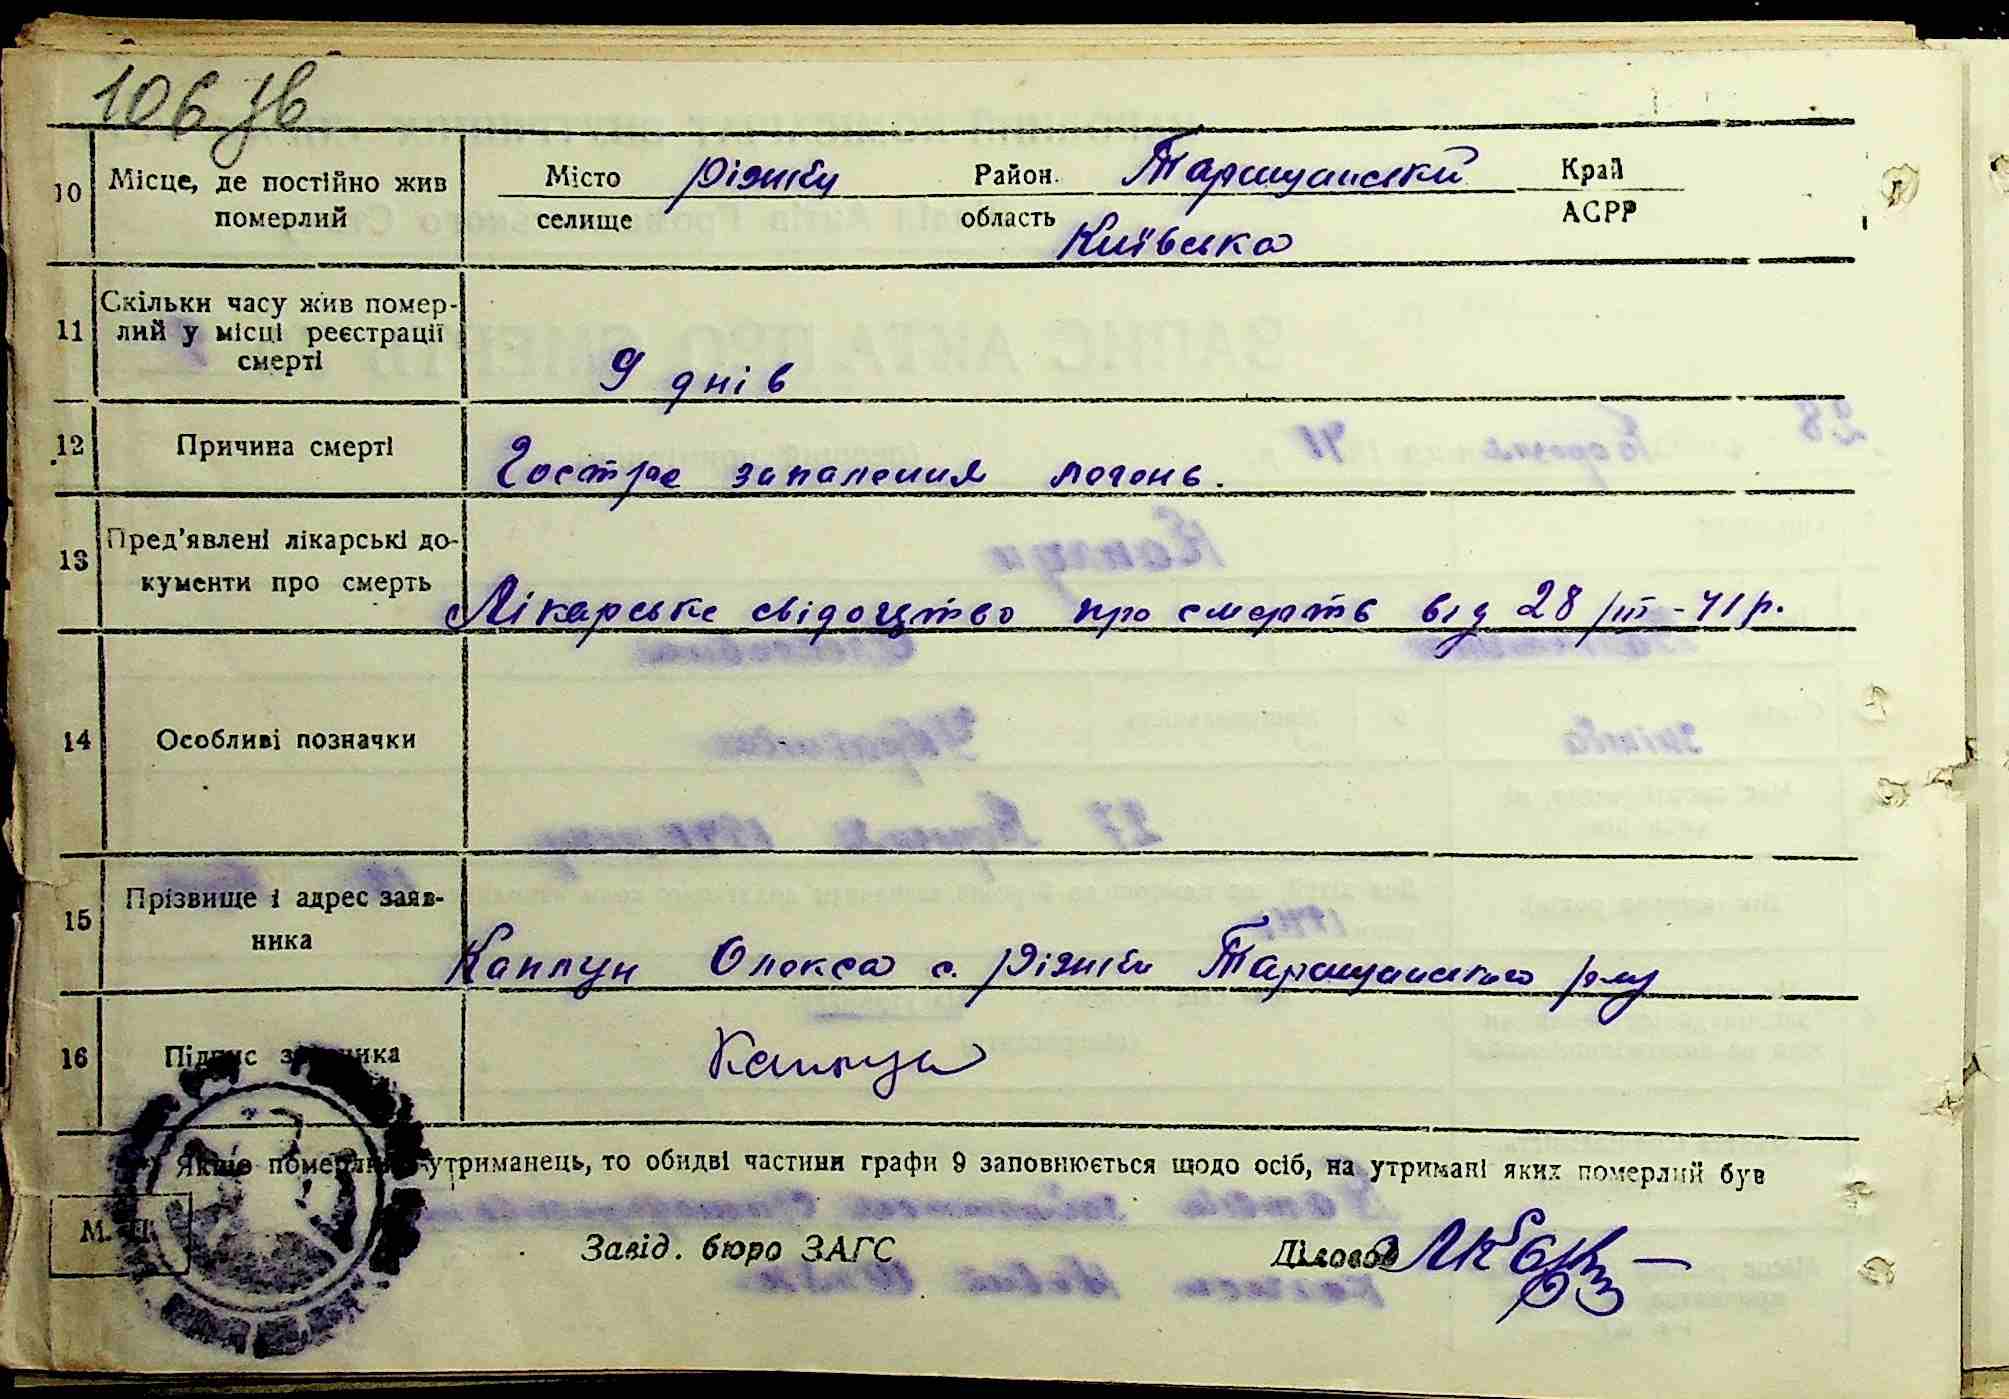 106 зв
10 Місце, де постійно жив померлий
Місто селище Ріжки Район Таращанський Край
область Київська АСРР
11 Скільки часу жив помер-
лий у місці реєстрації
смерті
9 днів
12 Причина смерті Гостре запалення легень.
13 Пред'явлені лікарські до-
кументи про смерть
Лікарське свідоцтво про смерть від 28/III-41р.
14 Особливі позначки
15 Прізвище і адрес заяв-
ника
Каплун Олекса с. Ріжки Таращанського р-ну
16 Підпис заявника Каплун
Якщо померлий-утриманець, то обидві частини графи 9 заповнюється щодо осіб, на утримані яких померлий був
М. П.
Завід. бюро ЗАГС Діловод